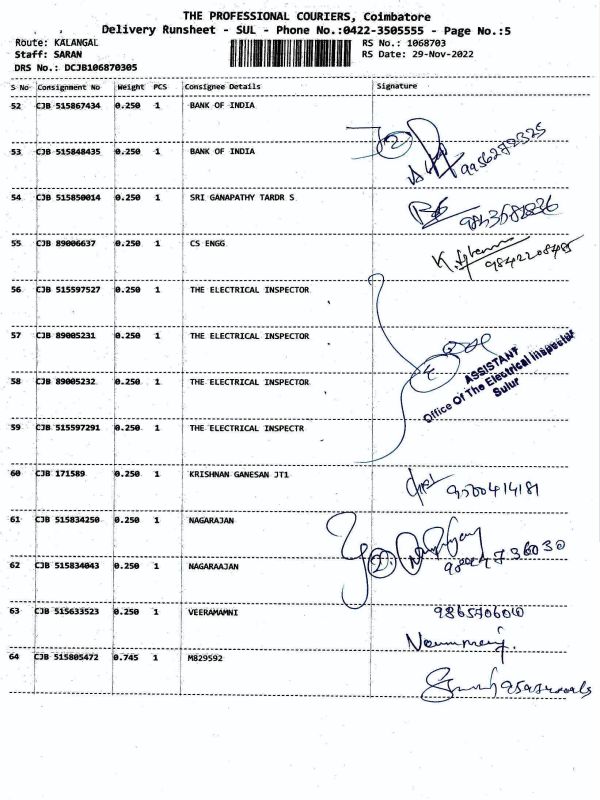 THE PROFESSIONAL COURIERS, Coimbatore
Delivery Runsheet - SUL - Phone No.:0422-3505555 - Page No.:5
Route: KALANGAL
RS No.: 1068703
Staff: SARAN
RS Date: 29-Nov-2022
DRS No.: DCJB106870305
S No Consignment No Weight PCS Consignee Details Signature
52 CJB 515867434 0.250 1 BANK OF INDIA
53 CJB 515848435 0.250 1 BANK OF INDIA
2
9956272325
54 CJB 515850014 0.250 1 SRI GANAPATHY TARDR S
55 CJB 89006637 0.250 1 CS ENGG
56 CJB 515597527 0.250 1 THE ELECTRICAL INSPECTOR
57 CJB 89005231 0.250 1 THE ELECTRICAL INSPECTOR
58 CJB 89005232 0.250 1 THE ELECTRICAL INSPECTOR
4
ASSISTANT
Office Of The Electrical Inspector
Sulur
59 CJB 515597291 0.250 1 THE ELECTRICAL INSPECTR
60 CJB 171589 0.250 1 KRISHNAN GANESAN JT1
9500414181
61 CJB 515834250 0.250 1 NAGARAJAN
62 CJB 515834043 0.250 1 NAGARAAJAN
2
63 CJB 515633523 0.250 1 VEERAMAMNI
64 CJB 515805472 0.745 1 M829592